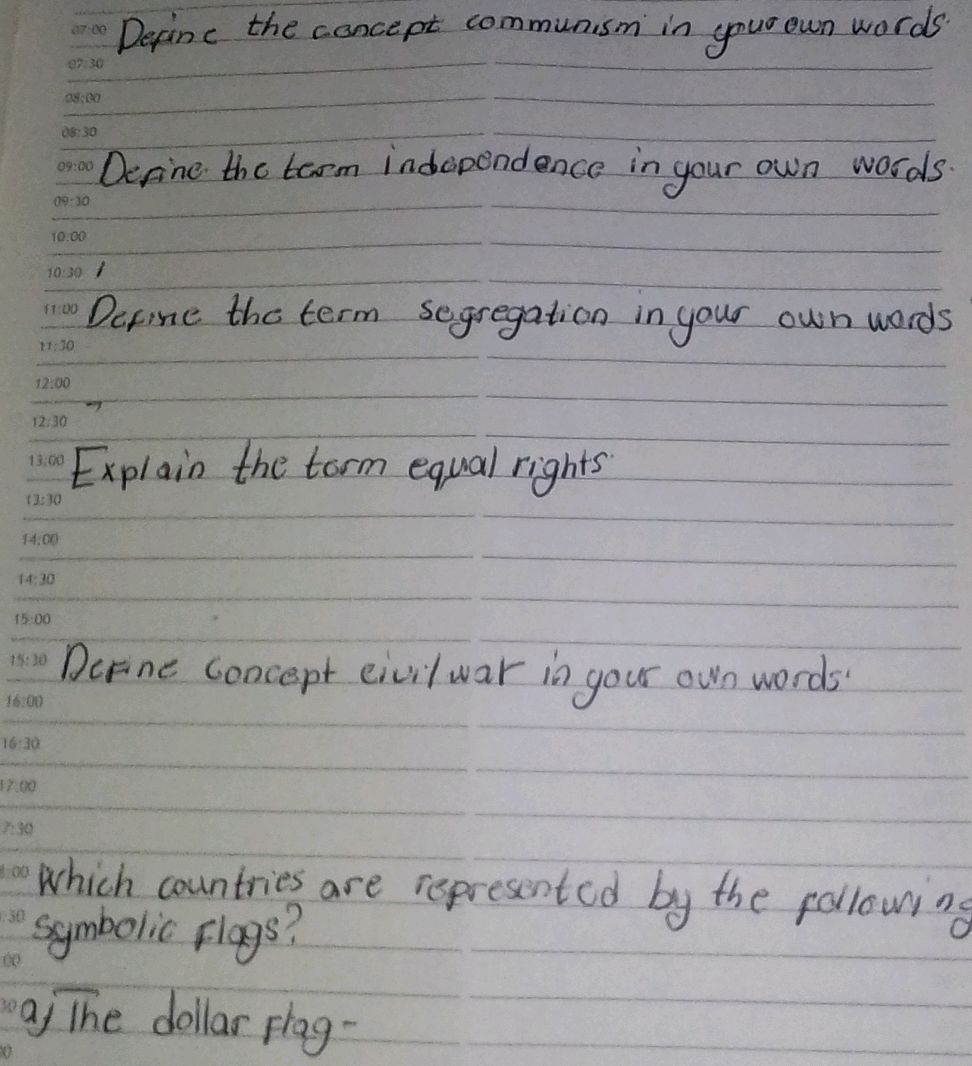 07:00 Define the concept communism in your own words.
07:30
08:00
08:30
09:00 Define the term independence in your own words.
09:30
10:00
10:30
11:00 Define the term segregation in your own words
11:30
12:00
12:30
13:00 Explain the term equal rights.
13:30
14:00
14:30
15:00
15:30 Define concept civil war in your own words.
16:00
16:30
17:00
7:30
:00 Which countries are represented by the following
:30 symbolic flags?
00
30 a) The dollar flag -
0